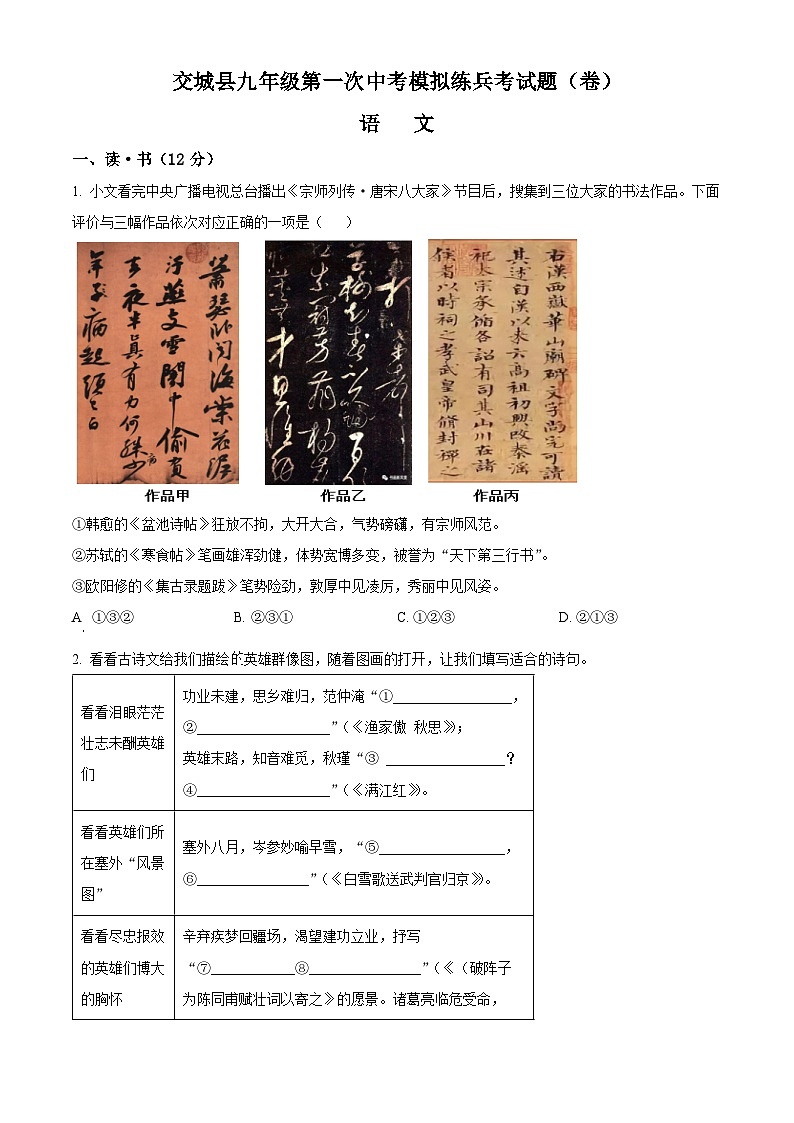 交城县九年级第一次中考模拟练兵考试题（卷）
语 文
一、读·书（12 分）
1. 小文看完中央广播电视总台播出《宗师列传·唐宋八大家》节目后，搜集到三位大家的书法作品。下面
评价与三幅作品依次对应正确的一项是（ ）
蕭瑟卧聞海棠花泥
汙燕支雪闇中偷負
去夜半真有力何殊少
年子病起頭已白
右漢西嶽華山廟碑文字尚完可讀
其述自漢以来云高祖初興改秦淫
祀太宗承循各詔有司其山川在諸
侯者以時祠之孝武皇帝脩封禪之
作品甲 作品乙 作品丙
①韩愈的《盆池诗帖》狂放不拘，大开大合，气势磅礴，有宗师风范。
②苏轼的《寒食帖》笔画雄浑劲健，体势宽博多变，被誉为“天下第三行书”。
③欧阳修的《集古录题跋》笔势险劲，敦厚中见凌厉，秀丽中见风姿。
A. ①③② B. ②③① C. ①②③ D. ②①③
2. 看看古诗文给我们描绘的英雄群像图，随着图画的打开，让我们填写适合的诗句。
看看泪眼茫茫
壮志未酬英雄
们
功业未建，思乡难归，范仲淹“①_________________，
②___________________”（《渔家傲 秋思》）；
英雄末路，知音难觅，秋瑾“③ _________________？
④___________________”（《满江红》）。
看看英雄们所
在塞外“风景
图”
塞外八月，岑参妙喻早雪，“⑤__________________，
⑥________________”（《白雪歌送武判官归京》）。
看看尽忠报效
的英雄们博大
的胸怀
辛弃疾梦回疆场，渴望建功立业，抒写
“⑦____________⑧________________”（《（破阵子
为陈同甫赋壮词以寄之》的愿景。诸葛亮临危受命，